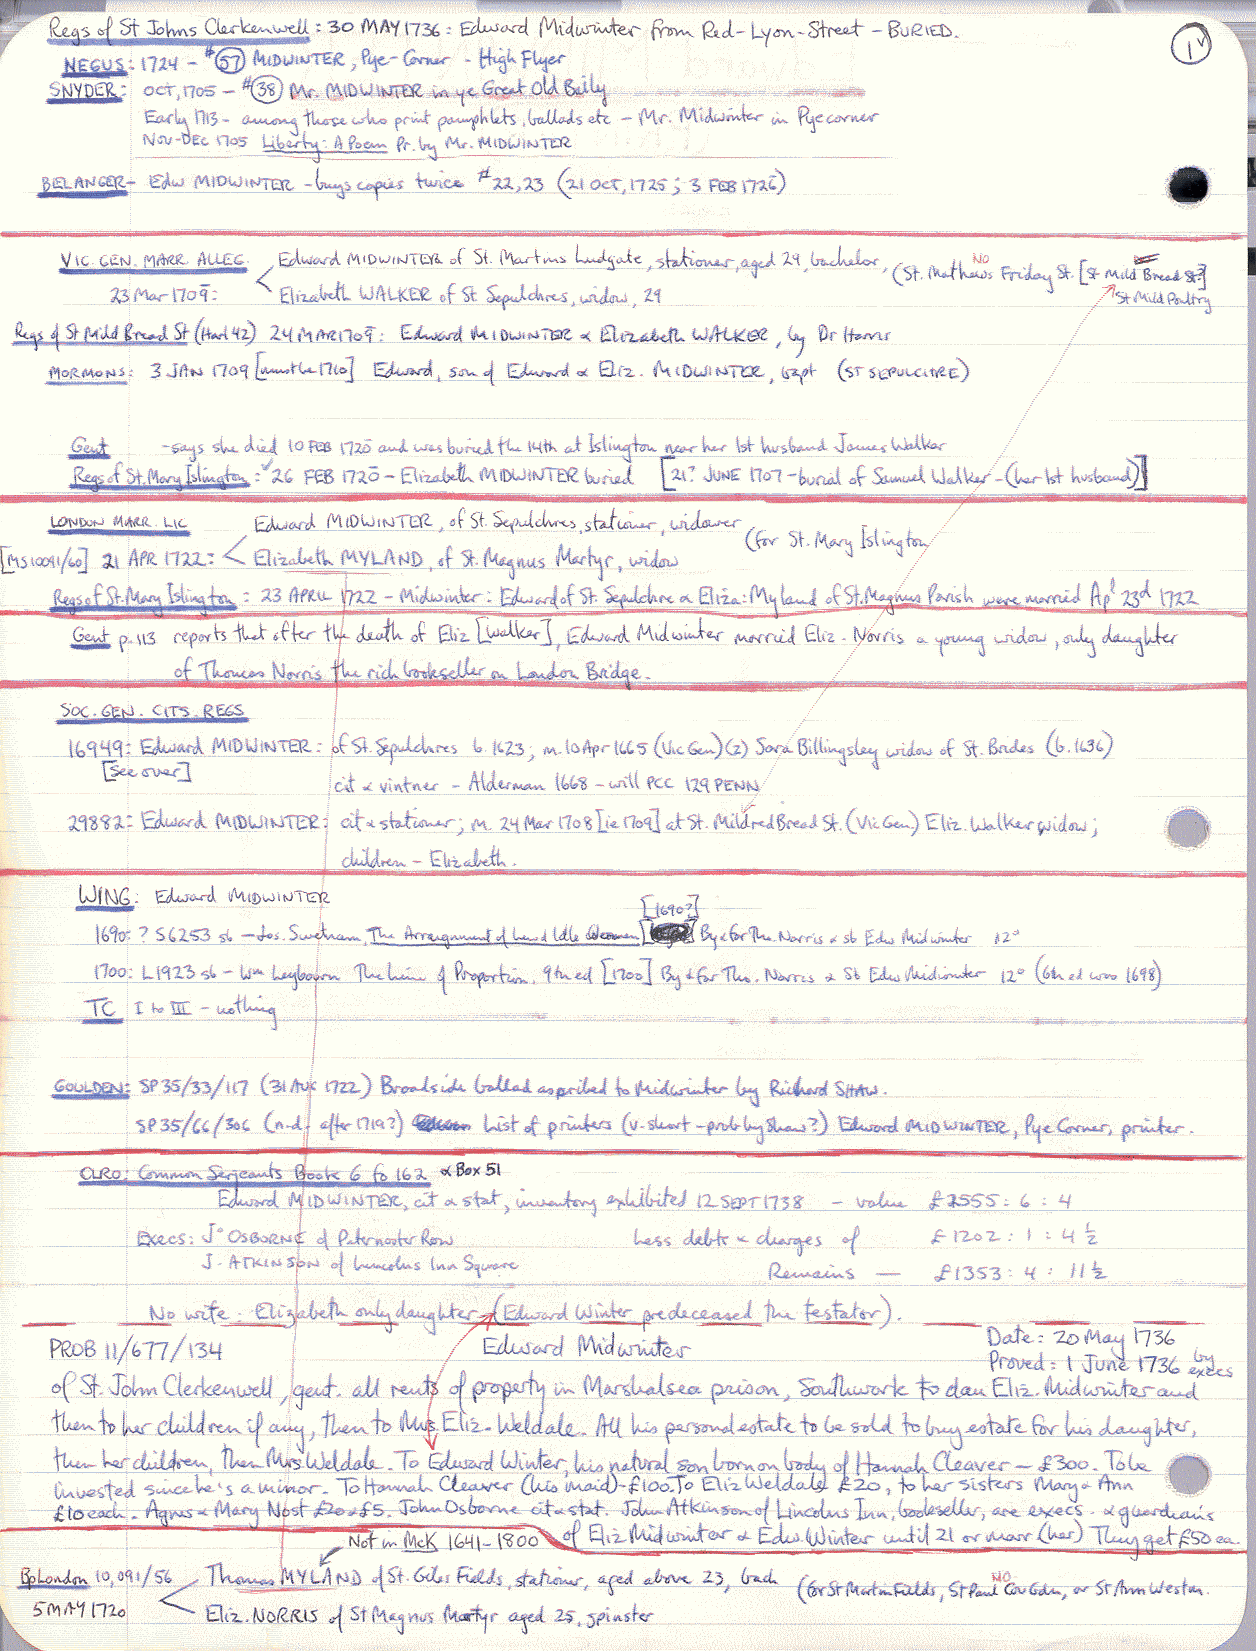 Regs of St Johns Clerkenwell: 30 MAY 1736: Edward Midwinter from Red-Lyon-Street - BURIED.
1v
NEGUS: 1724 - #57 MIDWINTER, Pye-Corner - High Flyer
SNYDER: OCT, 1705 - #38 Mr. MIDWINTER in ye Great Old Baily
Early 1713 - among those who print pamphlets, ballads etc - Mr. Midwinter in Pyecorner
NOV-DEC 1705 Liberty: A Poem Pr. by Mr. MIDWINTER
BELANGER - Edw MIDWINTER - buys copies twice #22, 23 (21 OCT, 1725; 3 FEB 1726)
VIC. GEN. MARR. ALLEG. Edward MIDWINTER of St. Martins Ludgate, stationer, aged 29, bachelor, (St. Mathews NO Friday St. [St Mild Bread St?]
23 Mar 1709: Elizabeth WALKER of St Sepulchres, widow, 29 St Mild Poultry
Regs of St Mild Bread St (Harl 42) 24 MAR 1709: Edward MIDWINTER & Elizabeth WALKER, by Dr Harris
MORMONS: 3 JAN 1709 [must be 1710] Edward, son of Edward & Eliz. MIDWINTER, bapt (ST SEPULCHRE)
Gent - says she died 10 FEB 1720 and was buried the 14th at Islington near her 1st husband James Walker
Regs of St. Mary Islington: 26 FEB 1720 - Elizabeth MIDWINTER buried [21? JUNE 1707 - burial of Samuel Walker - (her 1st husband)]
LONDON MARR. LIC Edward MIDWINTER, of St. Sepulchres, stationer, widower
(for St. Mary Islington
[MS 10091/60] 21 APR 1722: Elizabeth MYLAND, of St. Magnus Martyr, widow
Regs of St. Mary Islington: 23 APRIL 1722 - Midwinter: Edward of St. Sepulchre & Eliza: Myland of St. Magnus Parish were married Apl 23d 1722
Gent p. 113 reports that after the death of Eliz [Walker], Edward Midwinter married Eliz. Norris a young widow, only daughter
of Thomas Norris the rich bookseller on London Bridge.
SOC. GEN. CITS. REGS
16949: Edward MIDWINTER: of St. Sepulchres b. 1623; m. 10 Apr 1665 (Vic Gen) (2) Sara Billingsley widow of St. Brides (b. 1636)
[See over] cit & vintner - Alderman 1668 - will PCC 129 PENN
29882: Edward MIDWINTER: cit & stationer; m. 24 Mar 1708 [ie 1709] at St. Mildred Bread St. (Vic Gen) Eliz. Walker widow;
children - Elizabeth.
WING: Edward MIDWINTER
[1690?]
1690: ? S6253 sb - Jos. Swetnam, The Arraignment of Lewd Idle Women By & for Tho. Norris & sb Edw Midwinter 12°
1700: L1923 sb - Wm Leybourn The Line of Proportion, 9th ed [1700] By & for Tho. Norris & Sb Edw Midwinter 12° (6th ed was 1698)
TC I to III - nothing
GOULDEN: SP35/33/117 (31 AUG 1722) Broadside ballad ascribed to Midwinter by Richard SHAW.
SP35/66/306 (n-d- after 1719?) List of printers (v-short - prob by Shaw?) Edward MIDWINTER, Pye Corner, printer.
CLRO: Common Serjeants Book 6 fo 162 & Box 51
Edward MIDWINTER, cit & stat, inventory exhibited 12 SEPT 1738 - value £2555: 6: 4
Execs: Jo OSBORNE of Paternoster Row Less debts & charges of £1202: 1: 4½
J. ATKINSON of Lincolns Inn Square Remains - £1353: 4: 11½
No wife: Elizabeth only daughter (Edward Winter predeceased the testator).
PROB 11/677/134 Edward Midwinter Date: 20 May 1736
Proved: 1 June 1736 by execs
of St. John Clerkenwell, gent. all rents of property in Marshalsea prison, Southwark to dau Eliz. Midwinter and
then to her children if any, then to Mrs. Eliz. Weldale. All his personal estate to be sold to buy estate for his daughter,
then her children, then Mrs Weldale. To Edward Winter, his natural son born on body of Hannah Cleaver - £300. To be
invested since he's a minor. To Hannah Cleaver (his maid) - £100. To Eliz Weldale £20, to her sisters Mary & Ann
£10 each. Agnes & Mary Nost £20 & £5. John Osborne cit & stat. John Atkinson of Lincolns Inn, bookseller, are execs. & guardians
of Eliz Midwinter & Edw. Winter until 21 or marr (her) They get £50 ea.
Not in McK 1641-1800
Bp London 10,091/56 Thomas MYLAND of St. Giles Fields, stationer, aged above 23, bach (for St Martin Fields, St Paul NO Cov Gdn, or St Ann Westm.
5 MAY 1720 Eliz. NORRIS of St Magnus Martyr aged 25, spinster